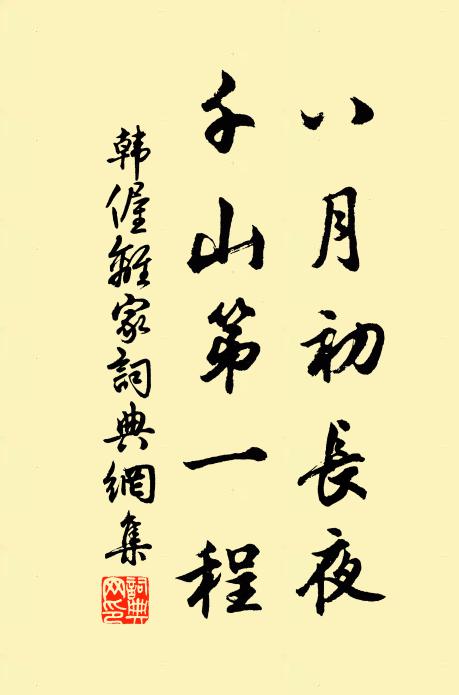 八月初長夜
千山第一程
韩偓離家詞典網集
詞典網印